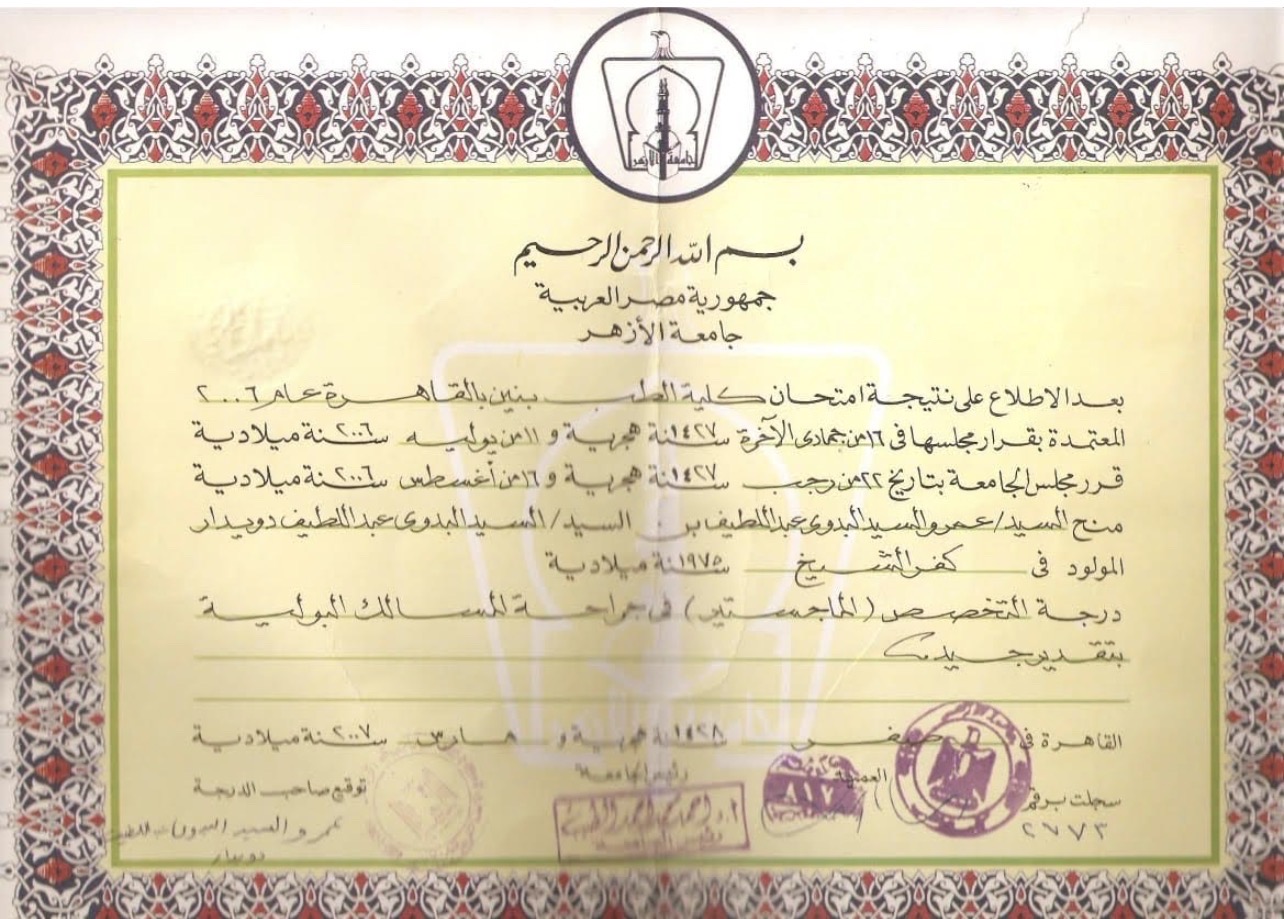 جامعة الأزهر
بسم الله الرحمن الرحيم
جمهورية مصر العربية
جامعة الأزهر
بعد الاطلاع على نتيجة امتحان كلية الطب بنين بالقاهرة عام ٢٠٠٦
المعتمدة بقرار مجلسها في ١٦ من جمادى الآخرة سنة ١٤٢٧ هجرية و ١١ من يوليه سنة ٢٠٠٦ ميلادية
قرر مجلس الجامعة بتاريخ ٢٢ من رجب سنة ١٤٢٧ هجرية و ١٦ من أغسطس سنة ٢٠٠٦ ميلادية
منح السيد/ عمرو السيد البدوى عبد اللطيف بن السيد/ السيد البدوى عبد اللطيف دويدار
المولود فى كفر الشيخ سنة ١٩٧٥ ميلادية
درجة التخصص (الماجستير) فى جراحة المسالك البولية
بتقدير جيد
القاهرة فى صفر سنة ١٤٢٨ هجرية و مارس سنة ٢٠٠٧ ميلادية
سجلت برقم العميد رئيس الجامعة توقيع صاحب الدرجة
٢٧٧٣
٨١٧
أ.د/ أحمد محمد أحمد الطيب
رئيس الجامعة
عمرو السيد البدوى عبد اللطيف
دويدار